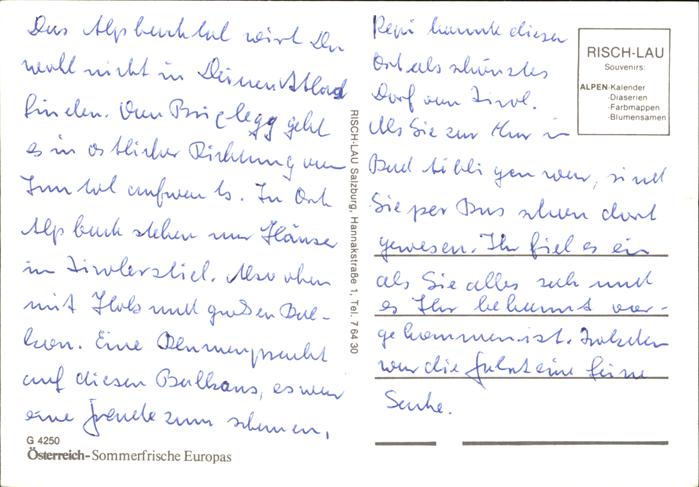 Das Alpbachtal wirst Du
wohl nicht in Deinem Atlas
finden. Von Brixlegg geht
es in östlicher Richtung vom
Inntal aufwärts. Im Ort
Alpbach stehen nur Häuser
im Tirolerstiel. Also oben
mit Holz und großen Bal-
kon. Eine Blumenpracht
auf diesen Balkons, es war
eine Freude zum schauen.
G 4250
Österreich-Sommerfrische Europas
RISCH-LAU Salzburg, Hannakstraße 1, Tel. 7 64 30
kannte diesen
Ort als schönstes
Dorf von Tirol.
Als Sie zur Kur in
Bad war, sind
Sie per Bus schon dort
gewesen. Ihr fiel es ein
als Sie alles sah und
es Ihr bekannt vor-
gekommen ist. Trotzdem
war die Fahrt eine feine
Sache.
RISCH-LAU
Souvenirs:
ALPEN-Kalender
-Diaserien
-Farbmappen
-Blumensamen